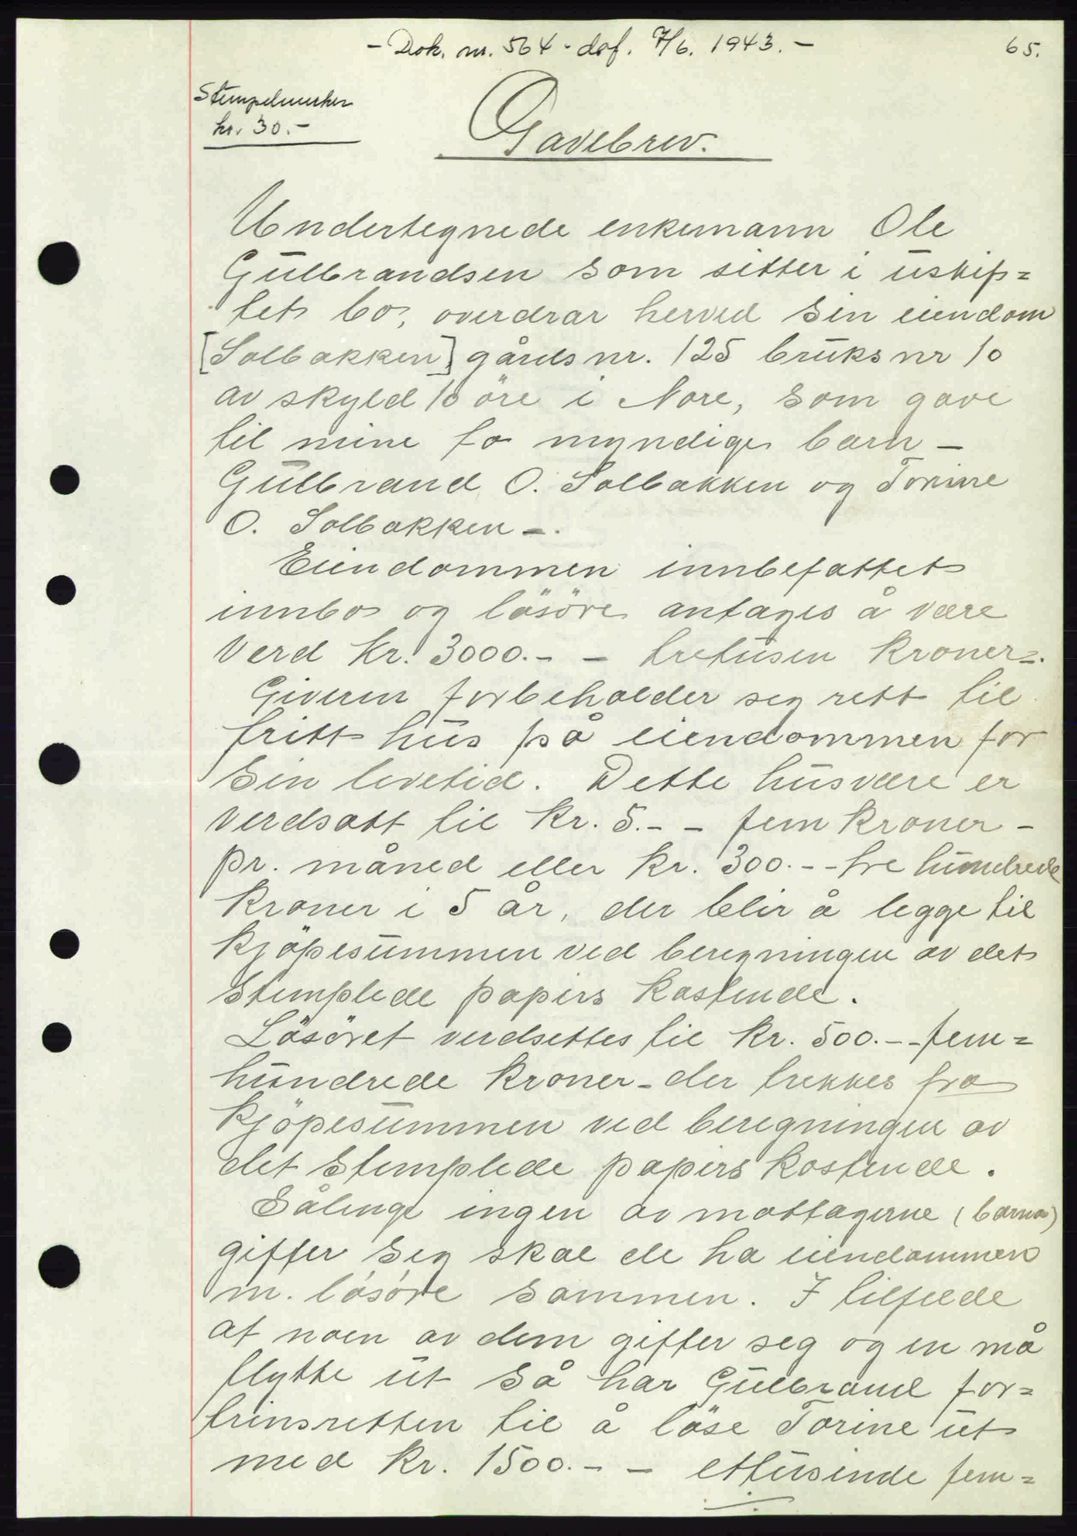 - Dok. nr. 564 - daf. 7/6. 1943. -
65.
Stempelmerker
kr. 30.-
Gavebrev.
Undertegnede enkemann Ole
Gulbrandsen som sitter i uskif=
tet bo, overdrar herved sin eiendom
[Solbakken] gårdsnr. 125 bruksnr 10
av skyld 10 öre i Nore, som gave
til mine to myndige barn -
Gulbrand O. Solbakken og Torine
O. Solbakken -.
Eiendommen innbefattet
innbo og lösöre antages å være
verd kr. 3000.- - tretusen kroner-.
Giveren forbeholder seg rett til
fritt hus på eiendommen for
sin levetid. Dette husvære er
verdsatt til kr. 5.- - fem kroner -
pr. måned eller kr. 300.- - tre hundrede
kroner i 5 år, der blir å legge til
kjöpesummen ved beregningen av det
stemplede papirs kostende.
Lösöret verdsettes til kr. 500.- - fem=
hundrede kroner - der trekkes fra
kjöpesummen ved beregningen av
det stemplede papirs kostende.
Sålenge ingen av mottagerne (barna)
gifter seg skal de ha eiendommen
m. lösöre sammen. I tilfelde
at noen av dem gifter seg og en må
flytte ut så har Gulbrand for=
trinsretten til å löse Torine ut
med kr. 1500.- - ettusinde fem=